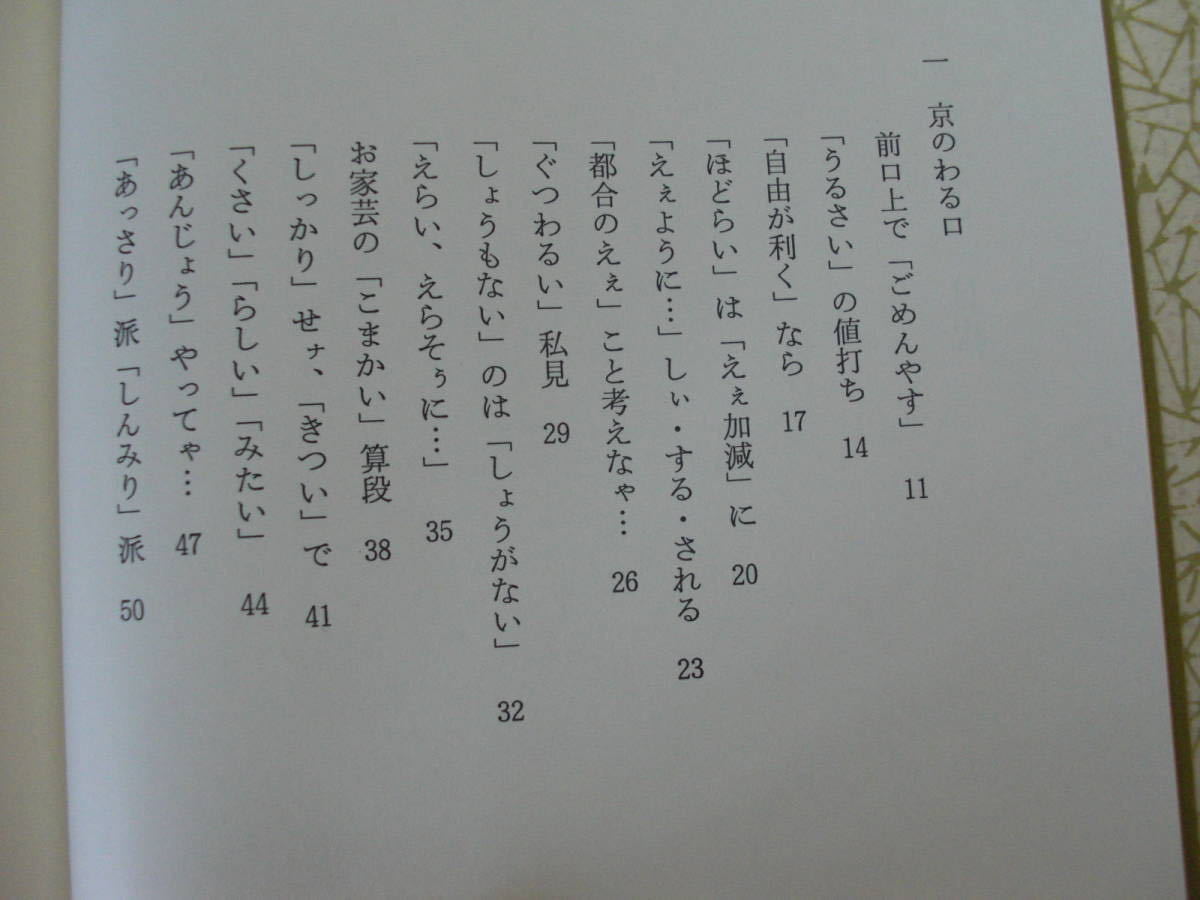 一　京のわる口
前口上で「ごめんやす」　11
「うるさい」の値打ち　14
「自由が利く」なら　17
「ほどらい」は「えぇ加減」に　20
「えぇように…」しぃ・する・される　23
「都合のえぇ」こと考えなゃ…　26
「ぐつわるい」私見　29
「しょうもない」のは「しょうがない」　32
「えらい、えらそぅに…」　35
お家芸の「こまかい」算段　38
「しっかり」せナ、「きつい」で　41
「くさい」「らしい」「みたい」　44
「あんじょう」やってゃ…　47
「あっさり」派「しんみり」派　50